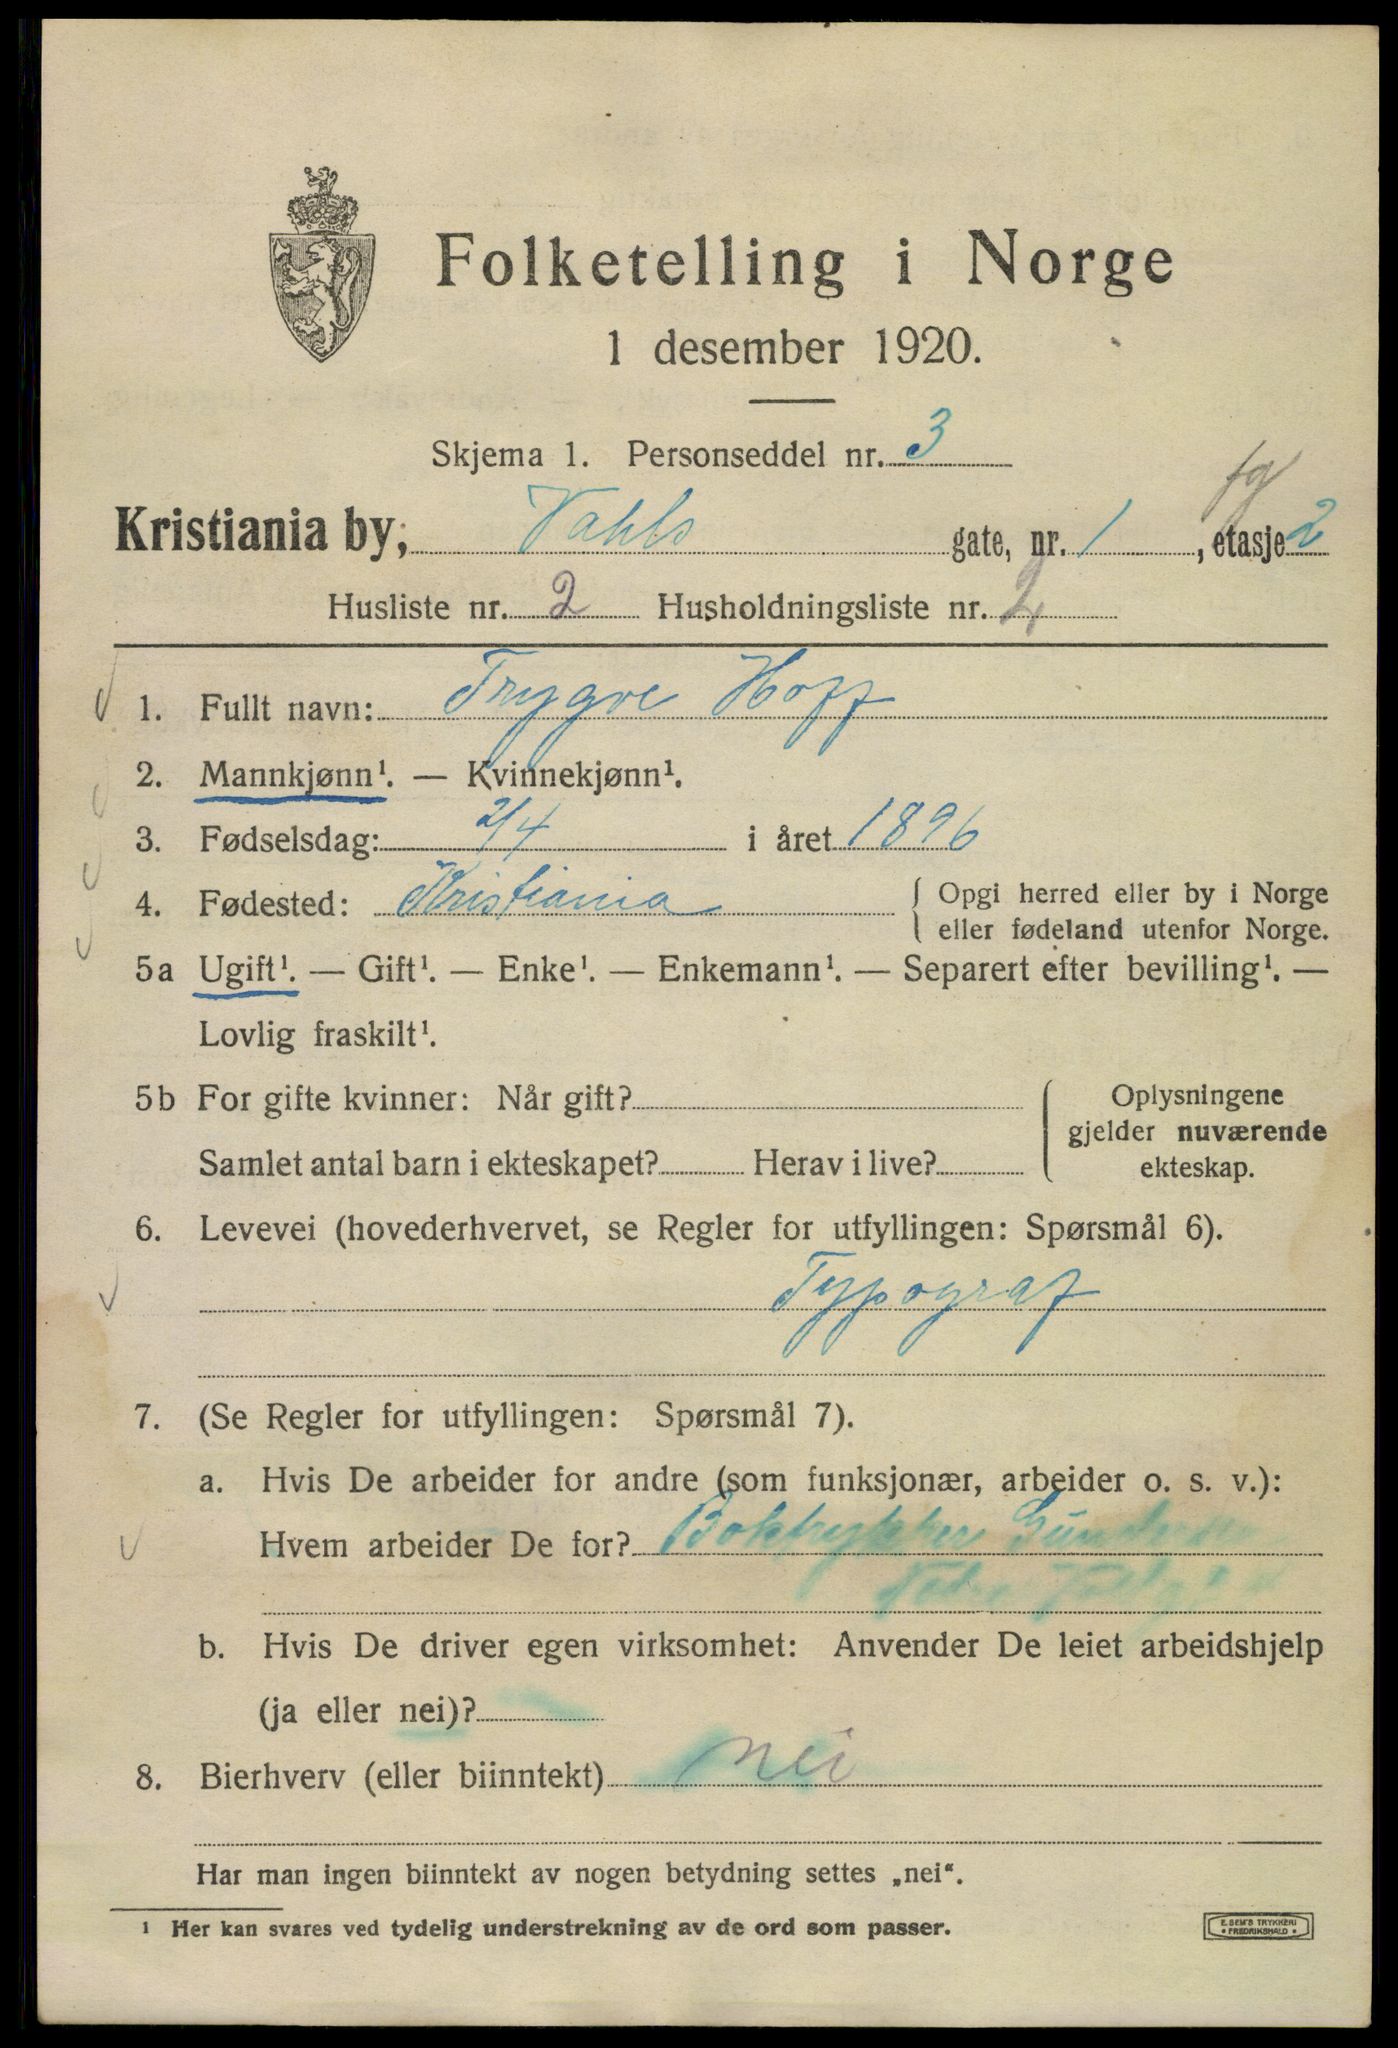 Folketelling i Norge
1 desember 1920.
Skjema 1. Personseddel nr. 3
fg
Kristiania by, Vahls gate, nr. 1, etasje 2
Husliste nr. 2 Husholdningsliste nr. 2
1. Fullt navn: Trygve Hoff
2. Mannkjønn¹. — Kvinnekjønn¹.
3. Fødselsdag: 2/4 i året 1896
4. Fødested: Kristiania { Opgi herred eller by i Norge
eller fødeland utenfor Norge.
5a Ugift¹. — Gift¹. — Enke¹. — Enkemann¹. — Separert efter bevilling¹. —
Lovlig fraskilt¹.
5b For gifte kvinner: Når gift? { Oplysningene
gjelder nuværende
Samlet antal barn i ekteskapet? Herav i live? ekteskap.
6. Levevei (hovederhvervet, se Regler for utfyllingen: Spørsmål 6).
Typograf
7. (Se Regler for utfyllingen: Spørsmål 7).
a. Hvis De arbeider for andre (som funksjonær, arbeider o. s. v.):
Hvem arbeider De for? Boktrykker Gundersen
b. Hvis De driver egen virksomhet: Anvender De leiet arbeidshjelp
(ja eller nei)?
8. Bierhverv (eller biinntekt) nei
Har man ingen biinntekt av nogen betydning settes „nei“.
¹ Her kan svares ved tydelig understrekning av de ord som passer.
E. SEM'S TRYKKERI
• FREDRIKSHALD •